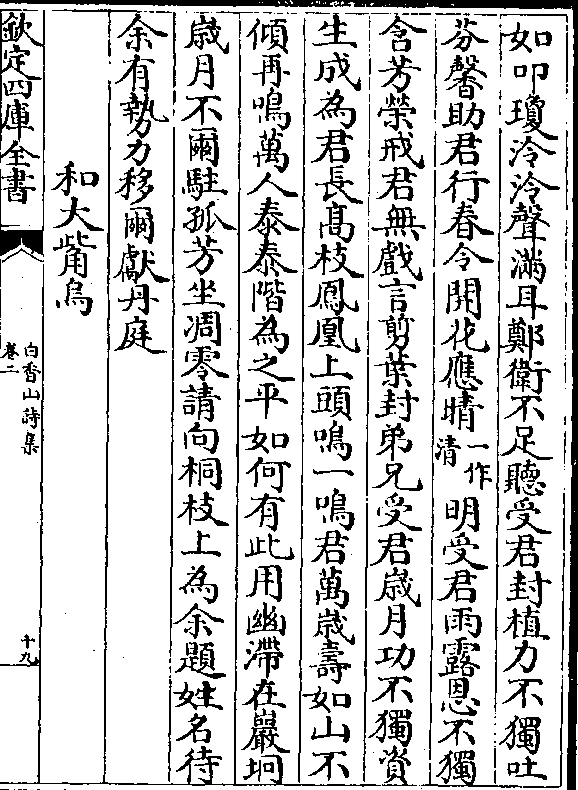 如叩瓊泠泠聲滿耳鄭衛不足聽受君封植力不獨吐
芬馨助君行春令開花應晴一作清明受君雨露恩不獨
含芳榮戒君無戲言剪葉封弟兄受君歲月功不獨資
生成為君長髙枝鳳凰上頭鳴一鳴君萬歲壽如山不
傾再鳴萬人泰泰階為之平如何有此用幽滯在巖坰
歲月不爾駐孤芳坐凋零請向桐枝上為余題姓名待
余有勢力移爾獻丹庭
和大觜烏
欽定四庫全書
白香山詩集
卷二
十九